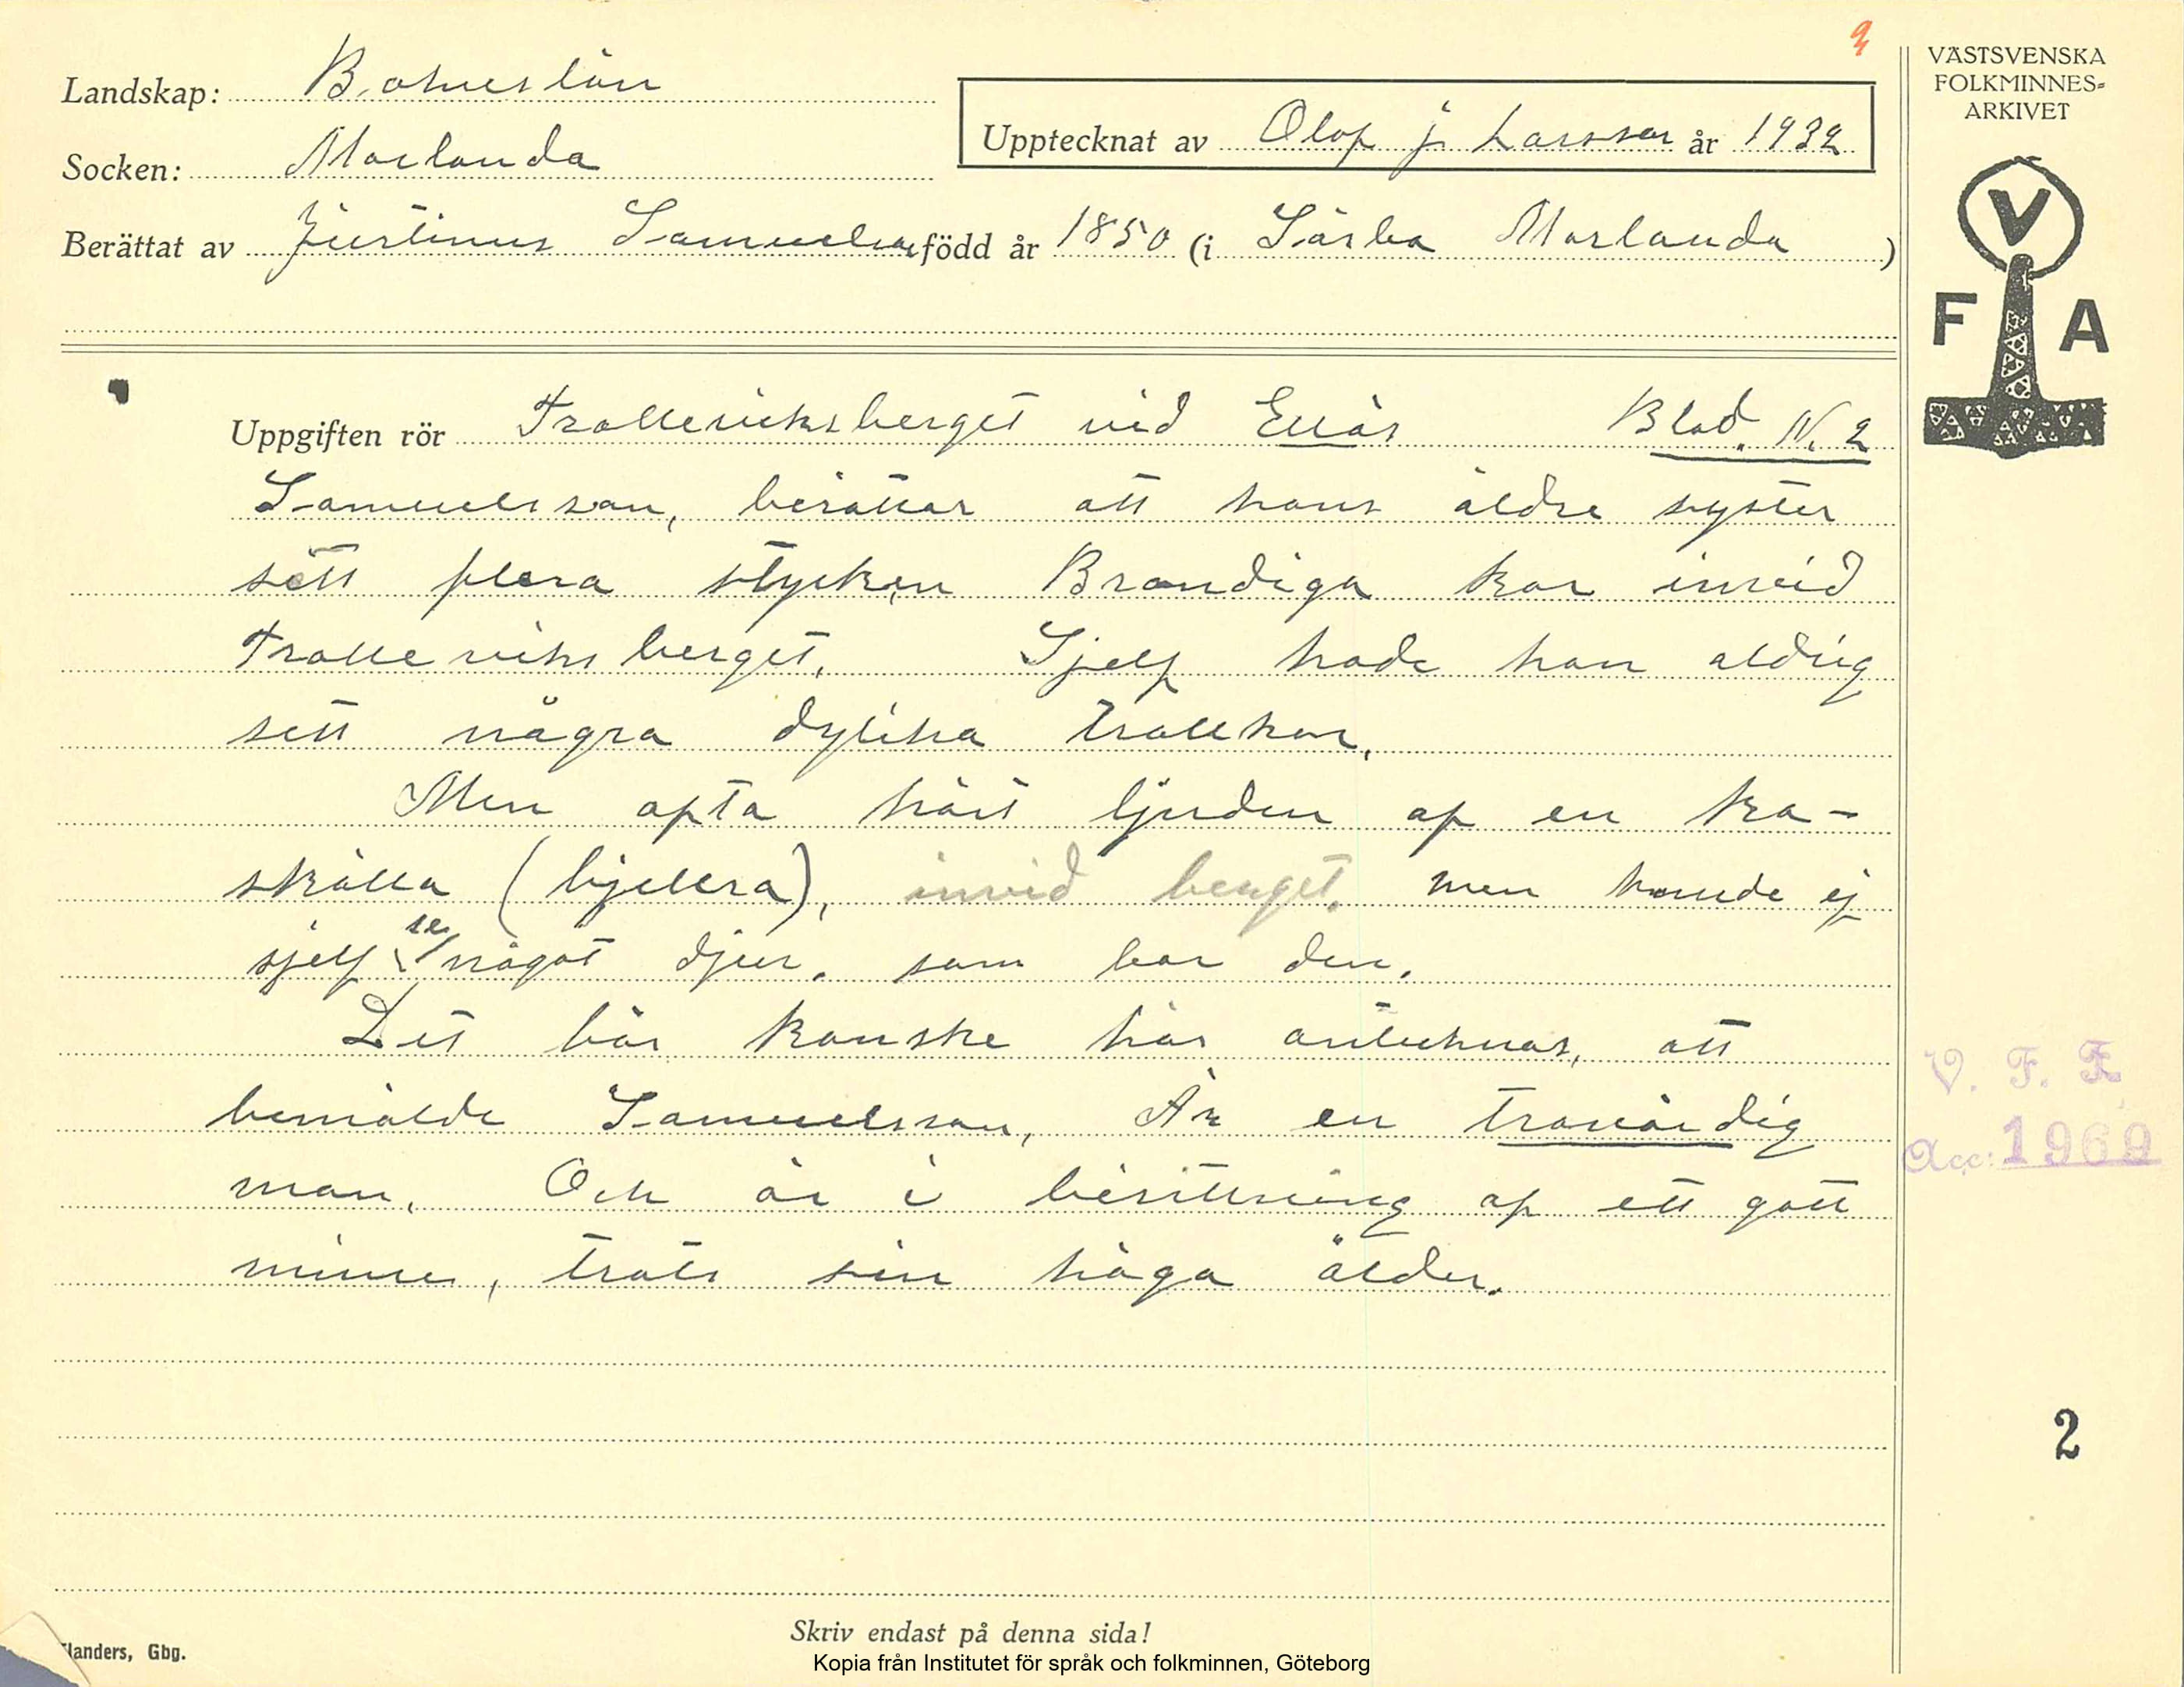 Landskap: Bohuslän
Socken: Morlanda
Upptecknat av Olof j. Larsson år 1932
Berättat av Justinus Samuelson född år 1850 (i Särba Morlanda)
VÄSTSVENSKA
FOLKMINNES-
ARKIVET
V
F A
Uppgiften rör Trolleviksberget vid Ellös Blad. N. 2
Samuelsson, berättar att hans äldre syster
sett flera stycken Brandiga kor invid
Trolleviksberget. Sjelf hade han aldrig
sett några dylika trollkor.
Men ofta hört ljuden af en ko-
skälla (bjellra), invid berget. men kunde ej
sjelf se något djur. som bar den.
Det bör kanske här antecknas, att
bemälde Samuelsson, Är en trovärdig
man. Och är i besittning af ett gott
minne, trots sin höga ålder.
V. F. F.
Acc: 1969
2
Skriv endast på denna sida!
landers, Gbg.
Kopia från Institutet för språk och folkminnen, Göteborg